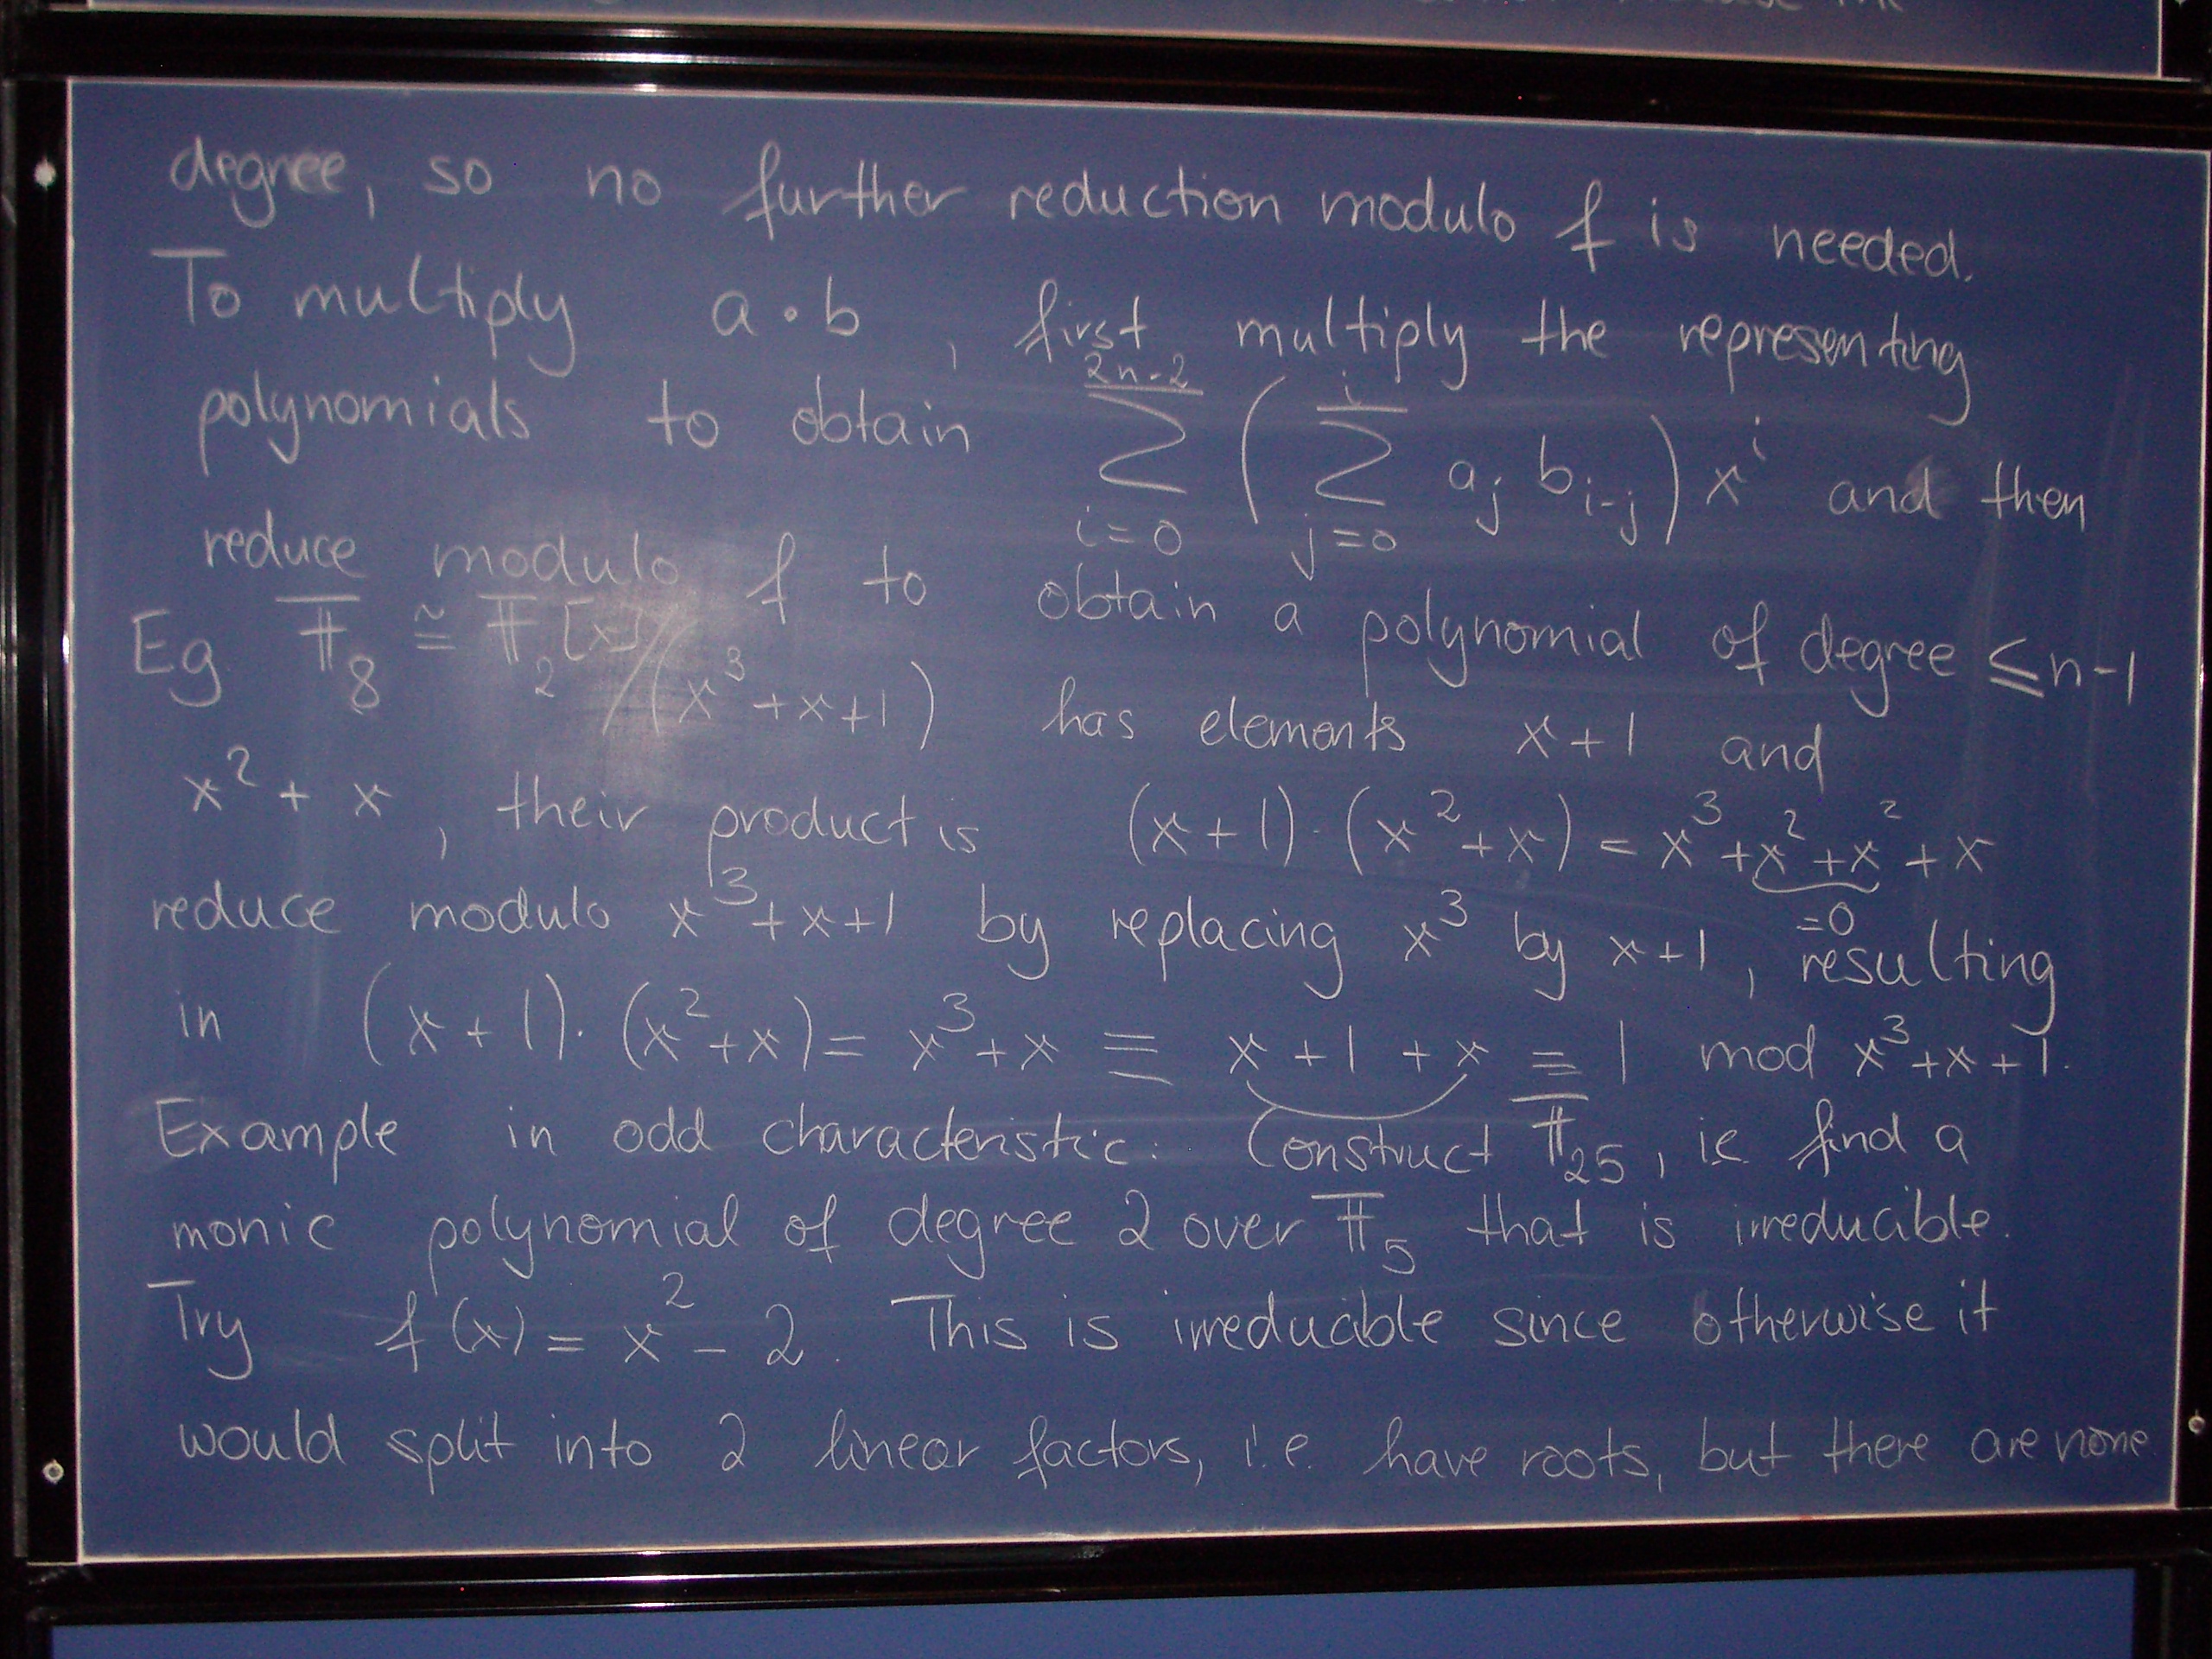 degree, so no further reduction modulo f is needed.
To multiply a·b, first multiply the representing
polynomials to obtain ∑_{i=0}^{2n-2} ( ∑_{j=0}^{i} a_j b_{i-j} ) x^i and then
reduce modulo f to obtain a polynomial of degree ≤ n-1
Eg 𝔽_8 ≅ 𝔽_2[x]/(x^3+x+1) has elements x+1 and
x^2+x, their product is (x+1)·(x^2+x) = x^3+x^2+x^2+x
=0
reduce modulo x^3+x+1 by replacing x^3 by x+1, resulting
in (x+1)·(x^2+x) = x^3+x ≡ x+1+x = 1 mod x^3+x+1.
Example in odd characteristic: Construct 𝔽_25, i.e. find a
monic polynomial of degree 2 over 𝔽_5 that is irreducible.
Try f(x) = x^2 - 2. This is irreducible since otherwise it
would split into 2 linear factors, i.e. have roots, but there are none